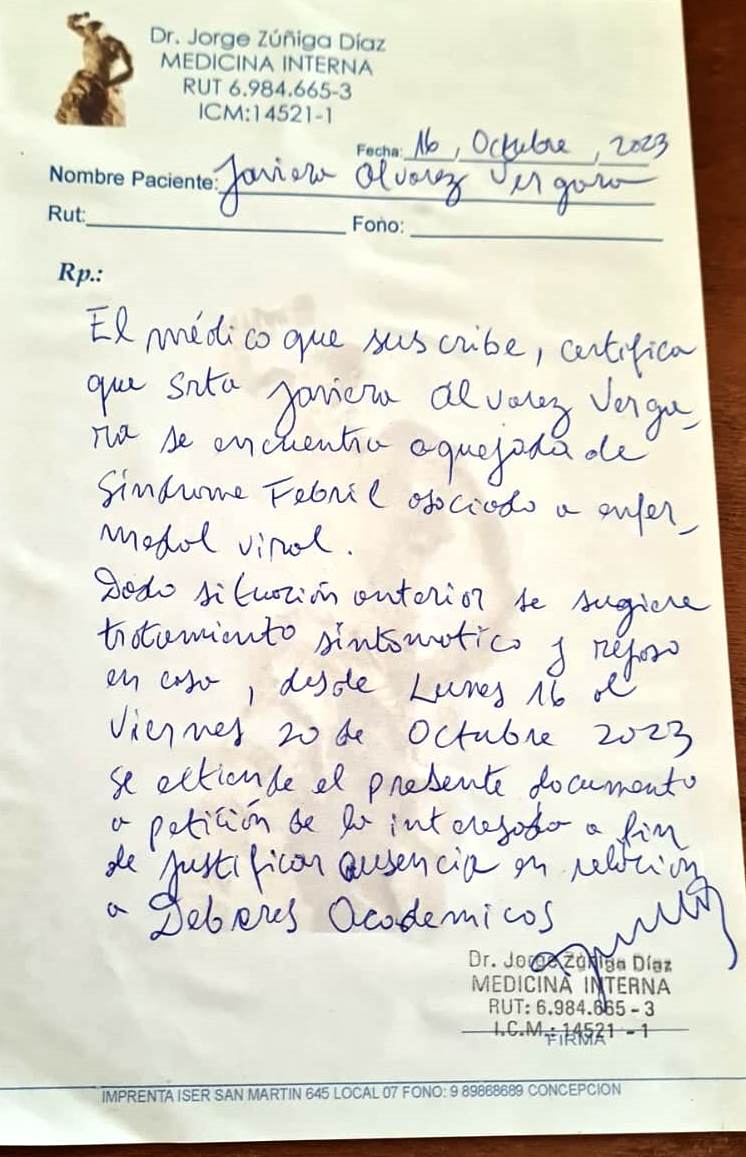 Dr. Jorge Zúñiga Díaz
MEDICINA INTERNA
RUT 6.984.665-3
ICM:14521-1
Fecha: 16, Octubre, 2023
Nombre Paciente: Javiera Alvarez Vergara
Rut:
Fono:
Rp.:
El médico que suscribe, certifica
que Srta Javiera Alvarez Verga_
ra se encuentra aquejada de
Síndrome Febril asociado a enfer_
medad viral.
Dado situación anterior se sugiere
tratamiento sintomatico y reposo
en casa, desde Lunes 16 al
Viernes 20 de Octubre 2023
Se extiende el presente documento
a petición de la interesada a fin
de justificar ausencia en relación
a Deberes Academicos
Dr. Jorge Zúñiga Díaz
MEDICINA INTERNA
RUT: 6.984.665-3
I.C.M.: 14521-1
FIRMA
IMPRENTA ISER SAN MARTIN 645 LOCAL 07 FONO: 9 89868689 CONCEPCION